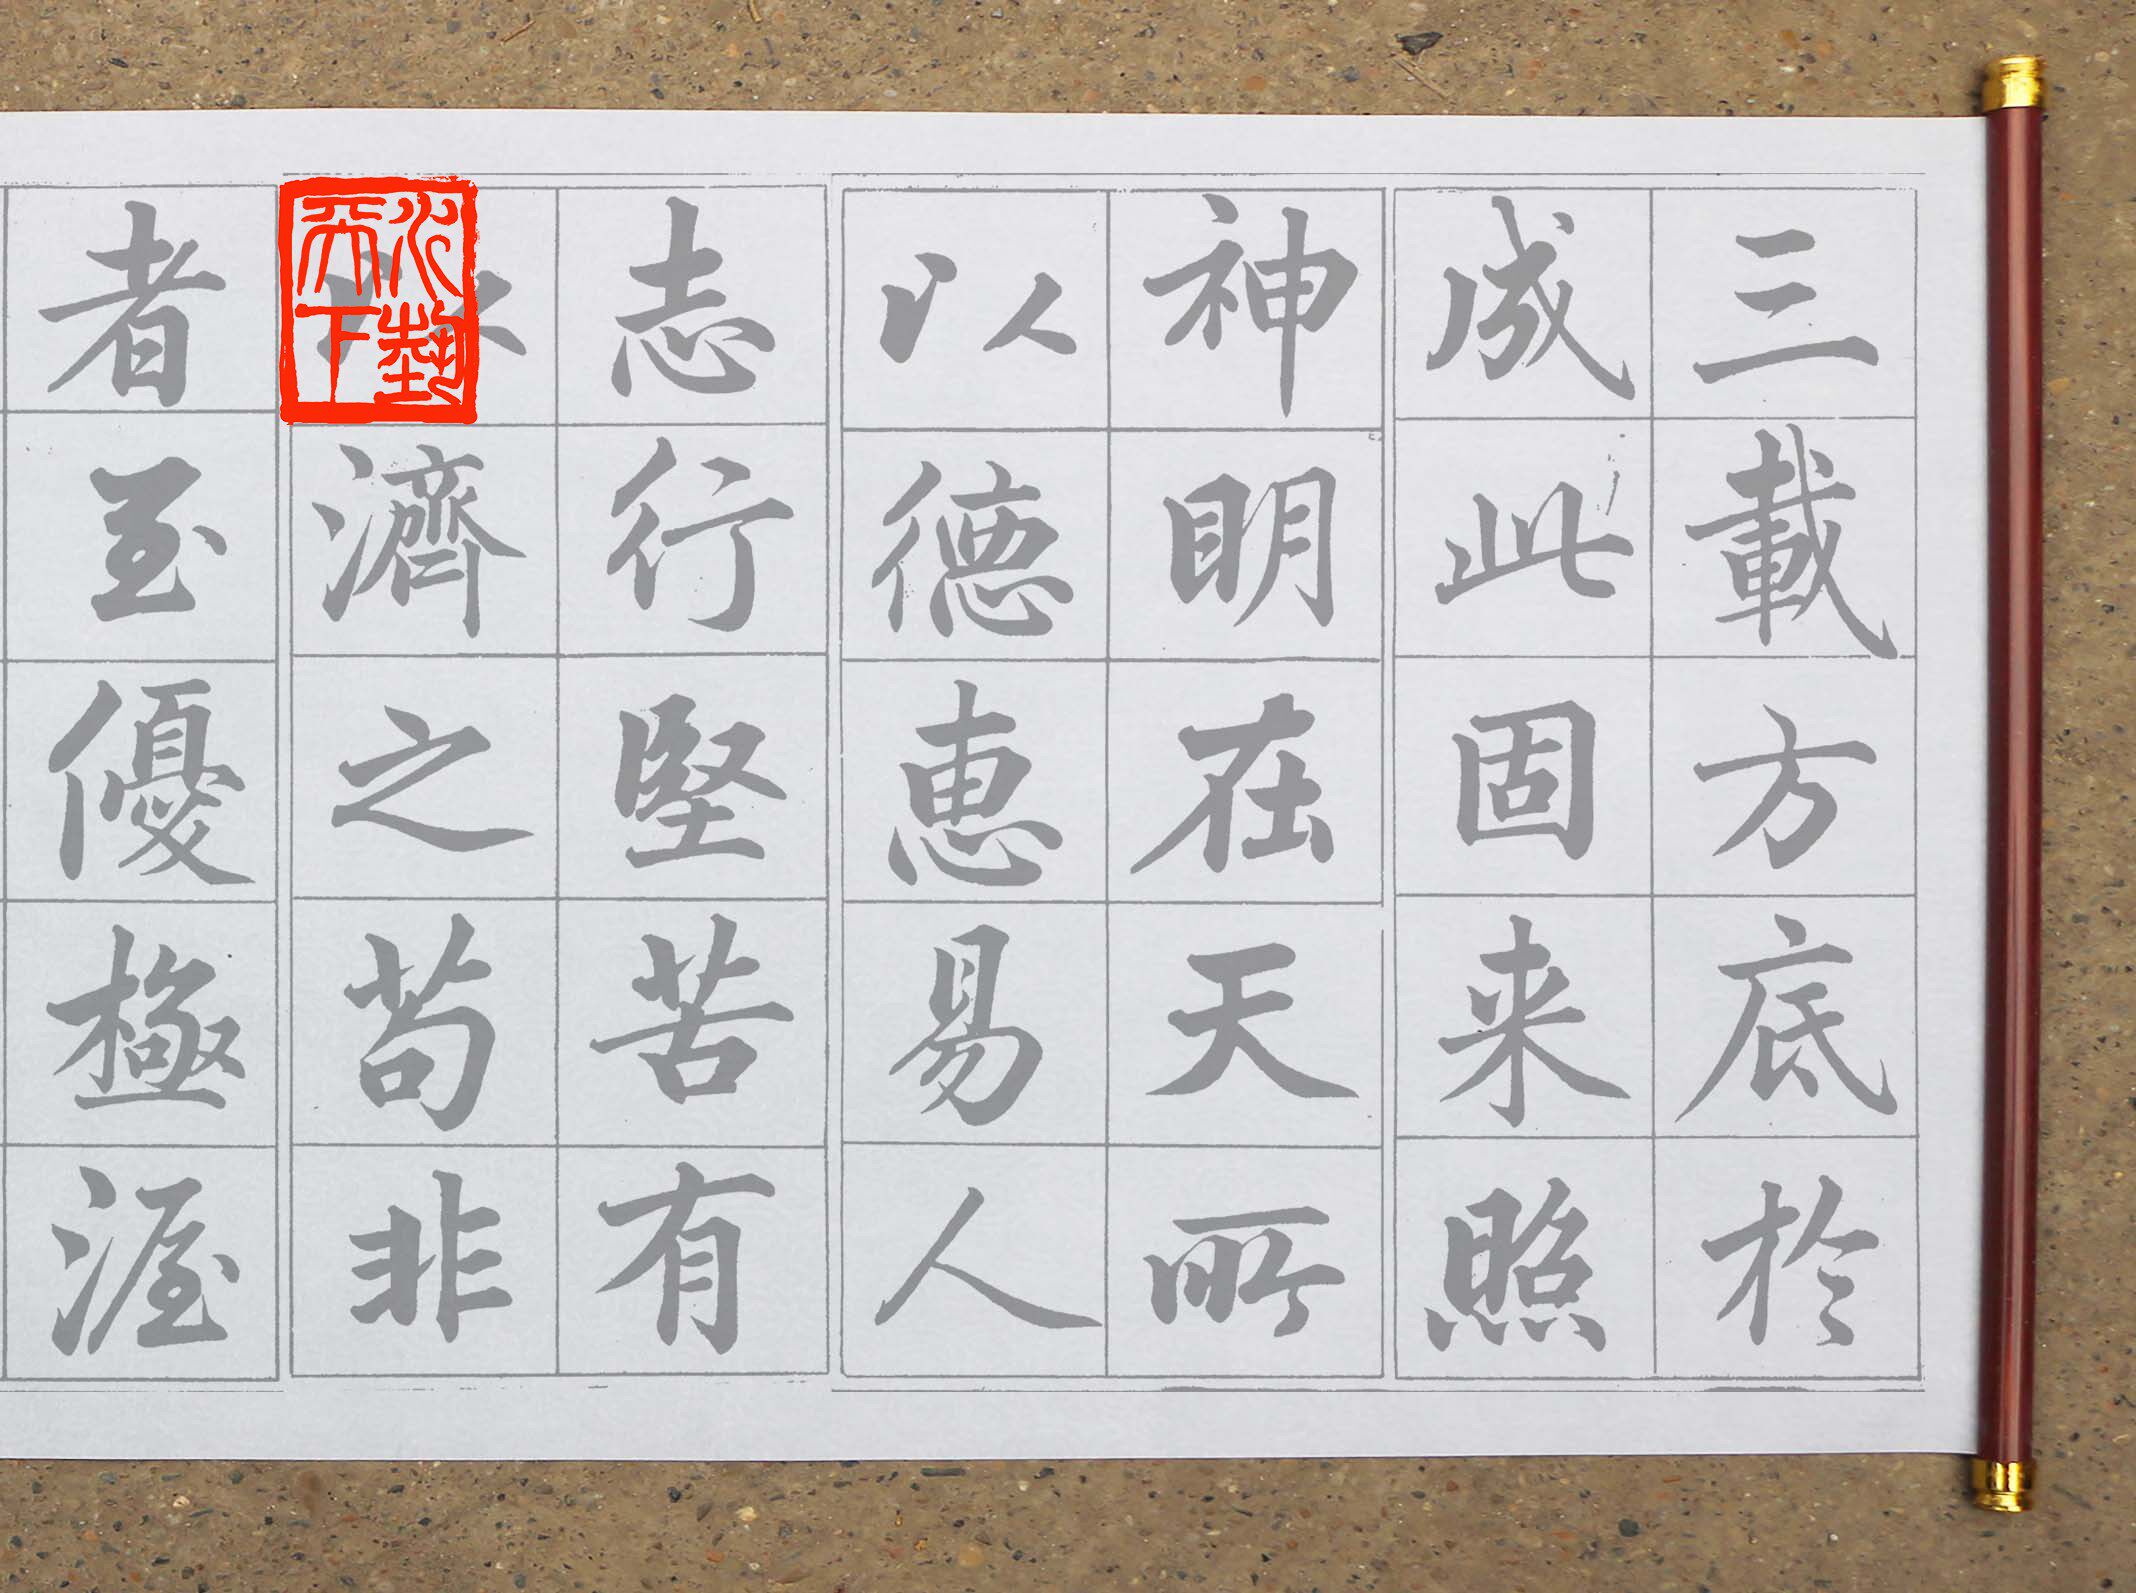 三載方底於
成此固来照
神明在天所
以德惠易人
志行堅苦有
以濟之苟非
者至優極渥